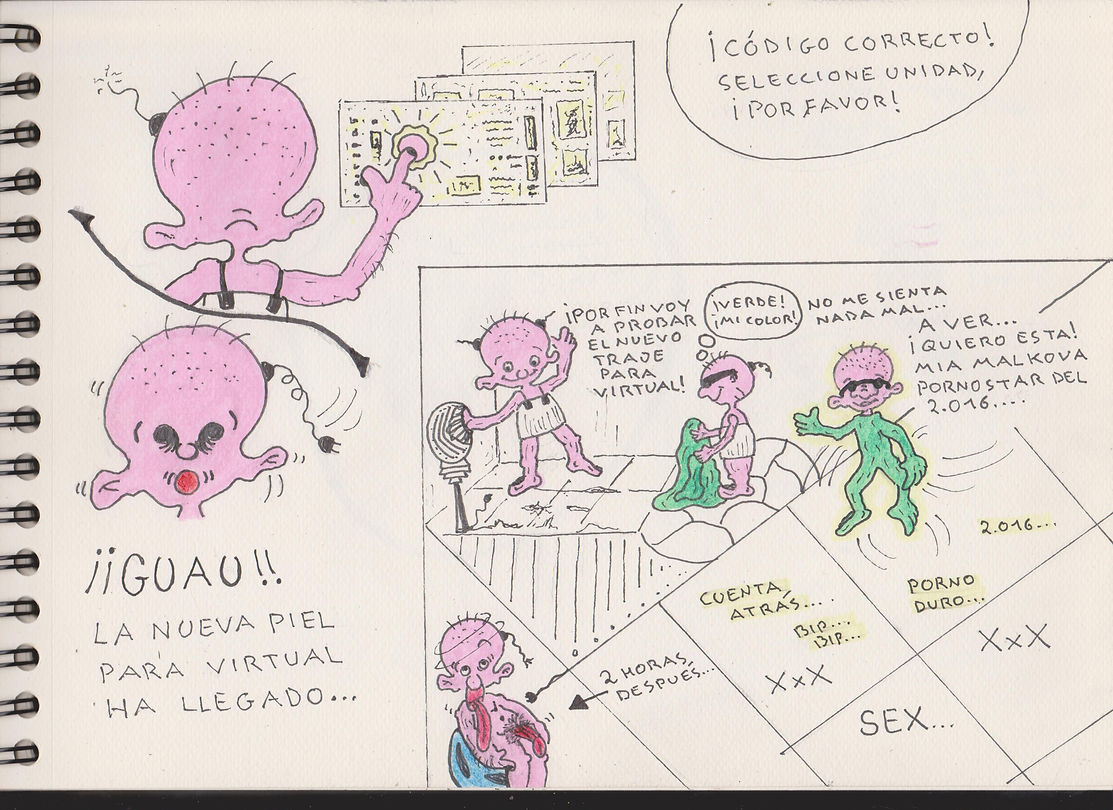 ¡CÓDIGO CORRECTO!
SELECCIONE UNIDAD,
¡POR FAVOR!
¡¡GUAU!!
LA NUEVA PIEL
PARA VIRTUAL
HA LLEGADO...
¡POR FIN VOY
A PROBAR
EL NUEVO
TRAJE
PARA
VIRTUAL!
¡VERDE!
¡MI COLOR!
NO ME SIENTA
NADA MAL...
A VER...
¡QUIERO ESTA!
MIA MALKOVA
PORNOSTAR DEL
2.016....
2.016...
PORNO
DURO...
CUENTA
ATRÁS....
BIP...
BIP...
XXX
XXX
SEX...
2 HORAS,
DESPUÉS...